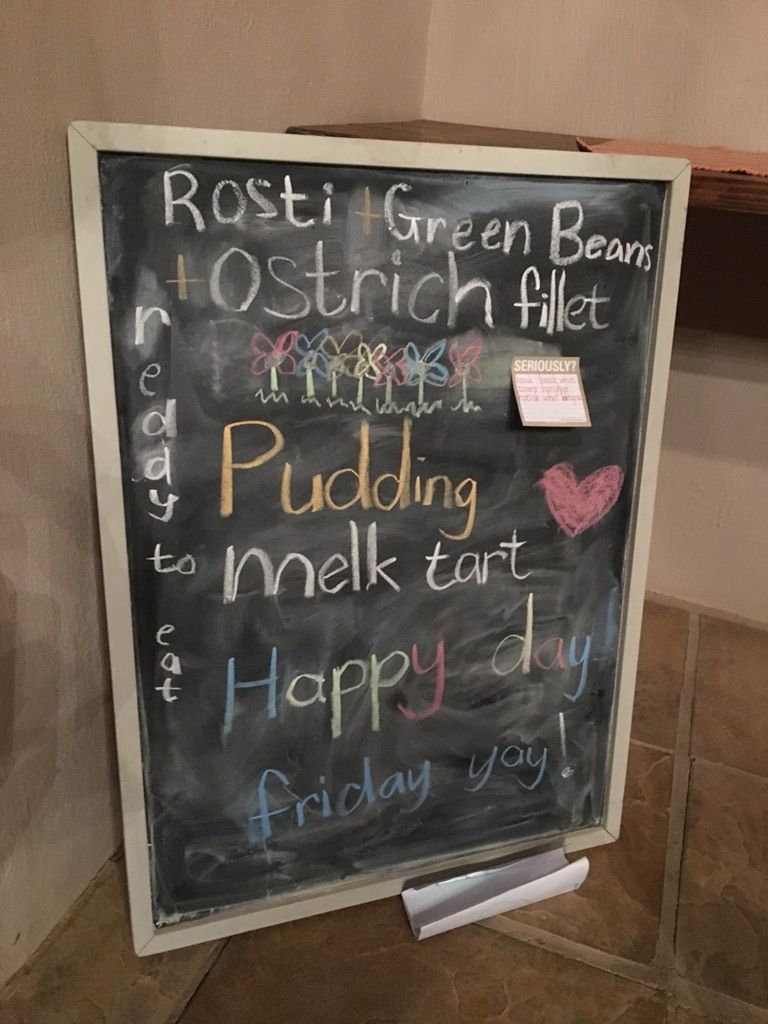 Rosti + Green Beans
+ Ostrich fillet
SERIOUSLY?
Pudding
melk tart
Happy day!
friday yay!
neady to eat